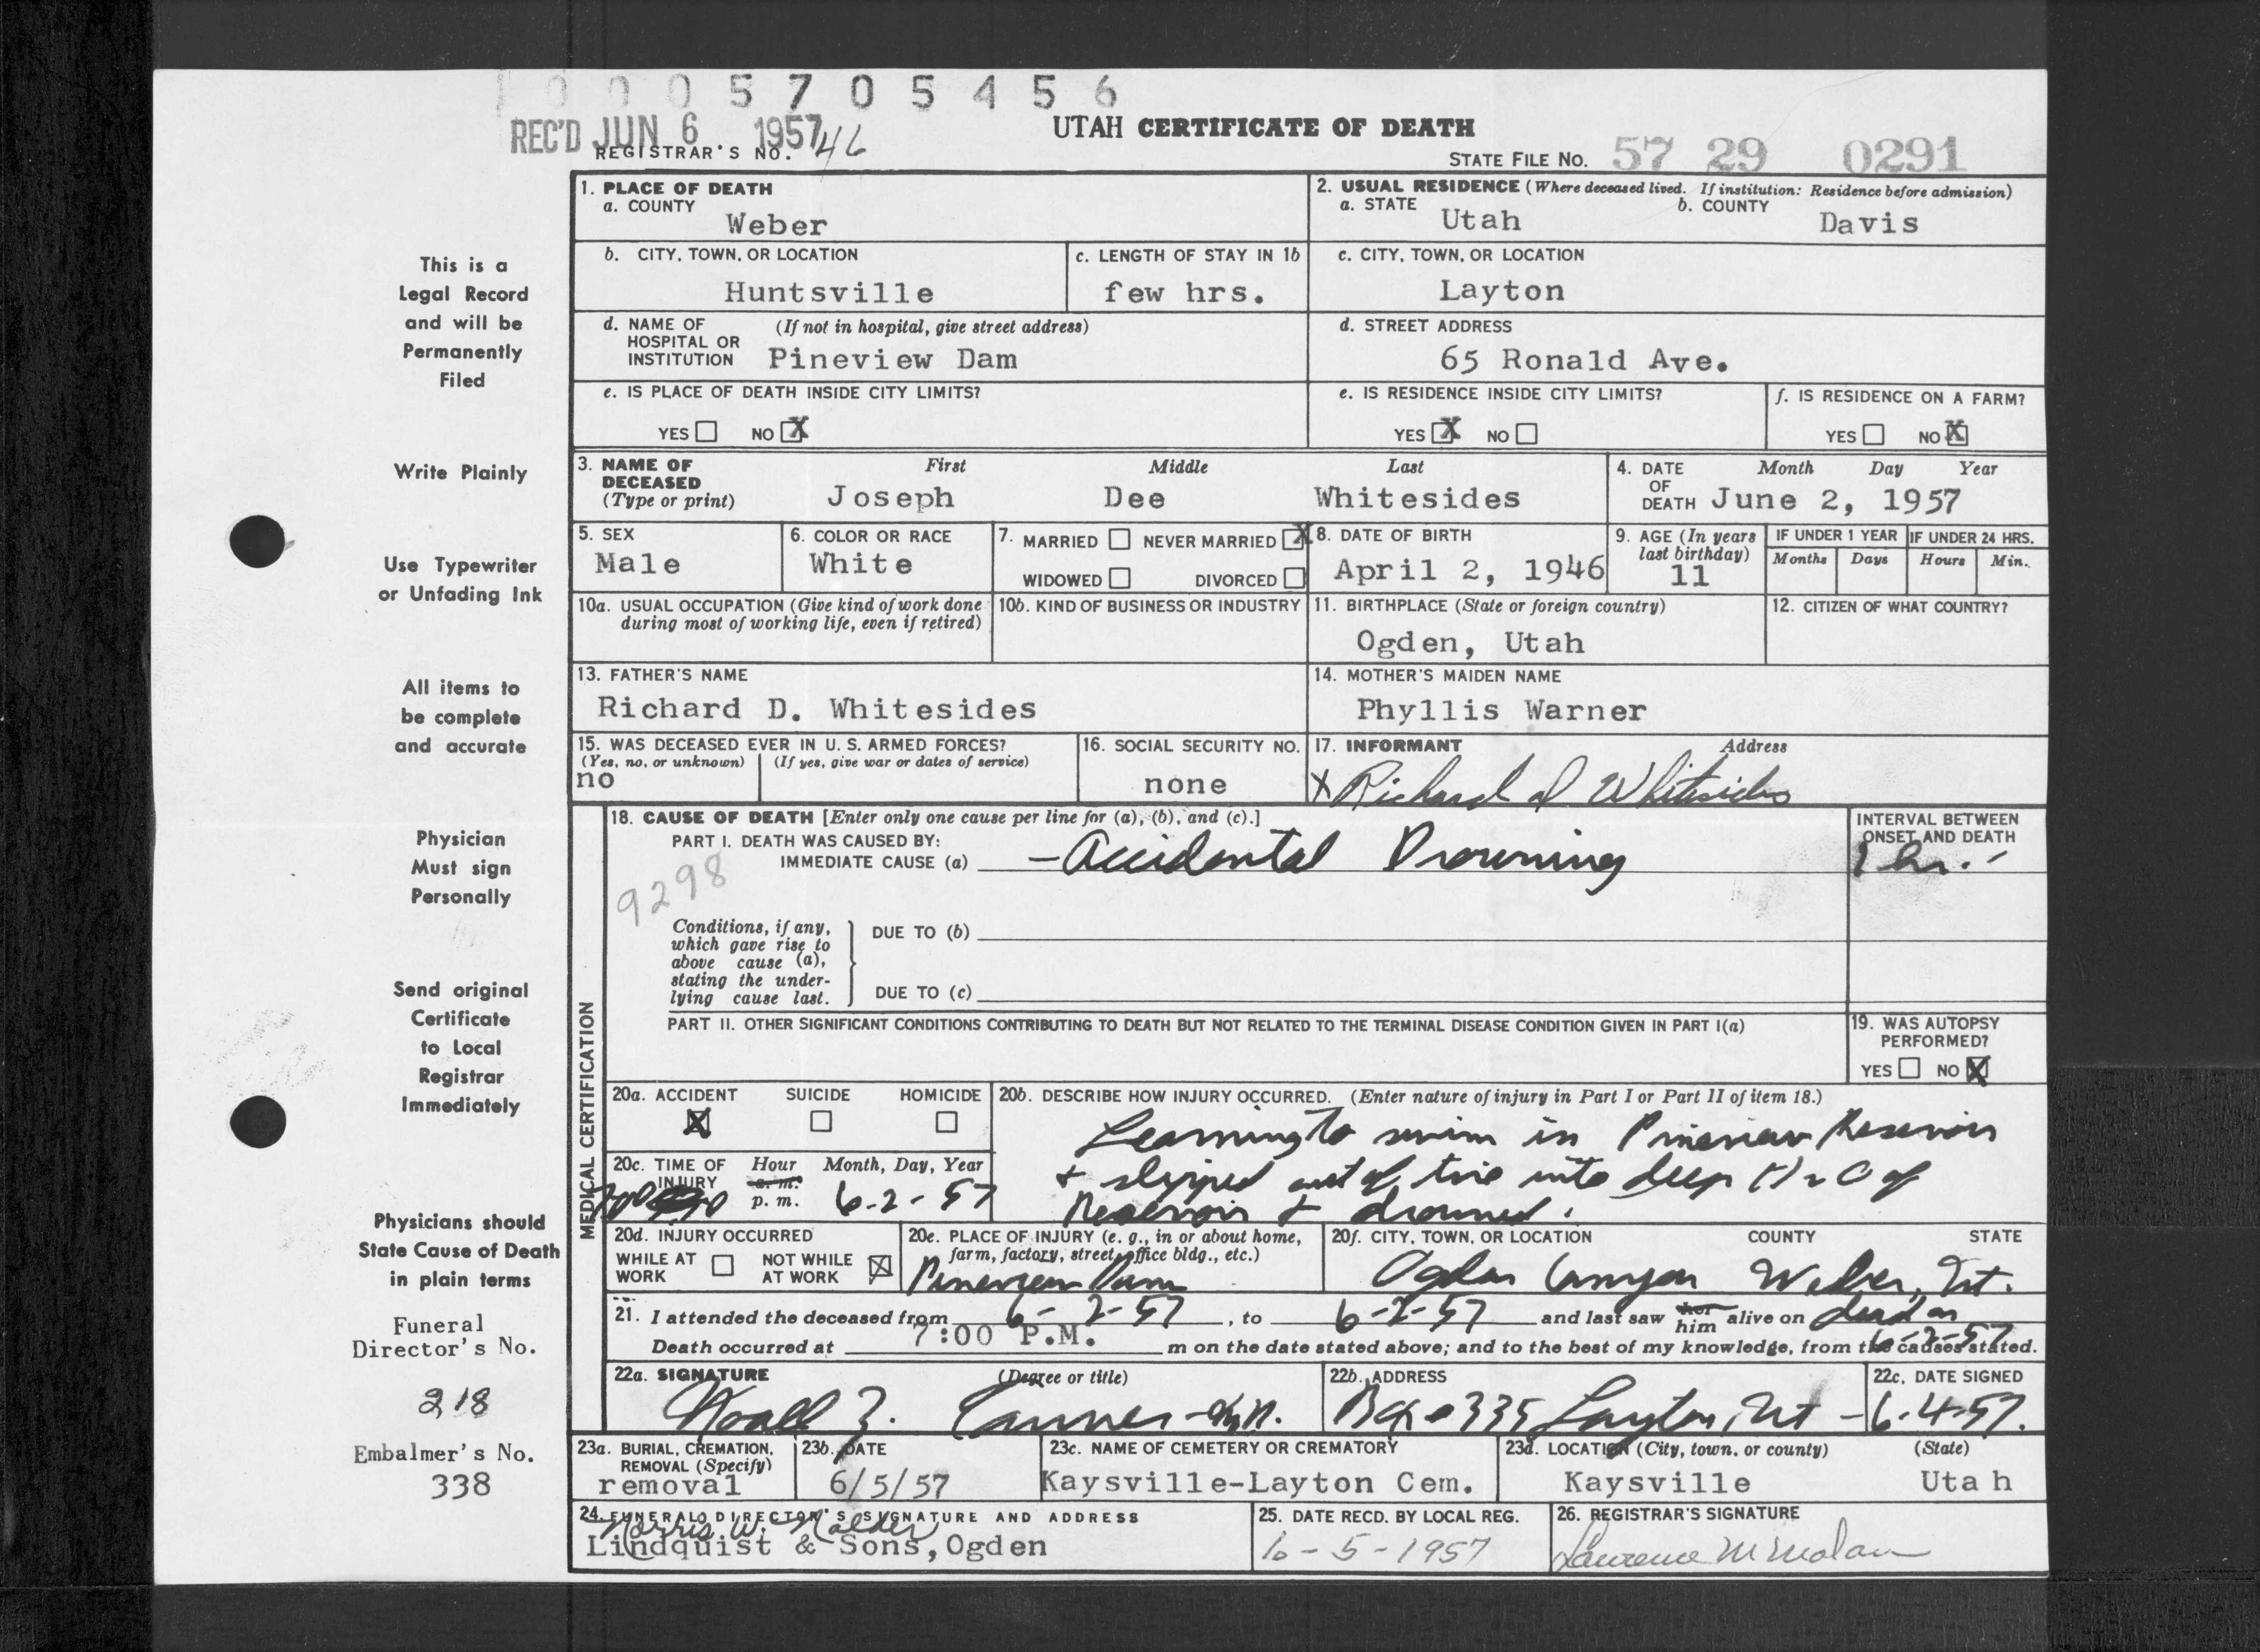 0 0 0 5 7 0 5 4 5 6
REC'D JUN 6 1957
REGISTRAR'S NO. 46
UTAH CERTIFICATE OF DEATH
STATE FILE NO. 57 29 0291
This is a
Legal Record
and will be
Permanently
Filed
Write Plainly
Use Typewriter
or Unfading Ink
All items to
be complete
and accurate
Physician
Must sign
Personally
Send original
Certificate
to Local
Registrar
Immediately
Physicians should
State Cause of Death
in plain terms
Funeral
Director's No.
218
Embalmer's No.
338
1. PLACE OF DEATH
a. COUNTY
Weber
2. USUAL RESIDENCE (Where deceased lived. If institution: Residence before admission)
a. STATE Utah b. COUNTY Davis
b. CITY, TOWN, OR LOCATION
Huntsville
c. LENGTH OF STAY IN 1b
few hrs.
c. CITY, TOWN, OR LOCATION
Layton
d. NAME OF HOSPITAL OR INSTITUTION (If not in hospital, give street address)
Pineview Dam
d. STREET ADDRESS
65 Ronald Ave.
e. IS PLACE OF DEATH INSIDE CITY LIMITS?
YES NO X
e. IS RESIDENCE INSIDE CITY LIMITS?
YES X NO
f. IS RESIDENCE ON A FARM?
YES NO X
3. NAME OF DECEASED (Type or print)
First Middle Last
Joseph Dee Whitesides
4. DATE OF DEATH Month Day Year
June 2, 1957
5. SEX
Male
6. COLOR OR RACE
White
7. MARRIED NEVER MARRIED X
WIDOWED DIVORCED
8. DATE OF BIRTH
April 2, 1946
9. AGE (In years last birthday)
11
IF UNDER 1 YEAR
Months Days
IF UNDER 24 HRS.
Hours Min.
10a. USUAL OCCUPATION (Give kind of work done
during most of working life, even if retired)
10b. KIND OF BUSINESS OR INDUSTRY
11. BIRTHPLACE (State or foreign country)
Ogden, Utah
12. CITIZEN OF WHAT COUNTRY?
13. FATHER'S NAME
Richard D. Whitesides
14. MOTHER'S MAIDEN NAME
Phyllis Warner
15. WAS DECEASED EVER IN U. S. ARMED FORCES?
(Yes, no, or unknown) (If yes, give war or dates of service)
no
16. SOCIAL SECURITY NO.
none
17. INFORMANT Address
X Richard D Whitesides
MEDICAL CERTIFICATION
18. CAUSE OF DEATH [Enter only one cause per line for (a), (b), and (c).]
PART I. DEATH WAS CAUSED BY:
IMMEDIATE CAUSE (a) - Accidental Drowning
INTERVAL BETWEEN
ONSET AND DEATH
1 hr.
9298
Conditions, if any,
which gave rise to
above cause (a),
stating the under-
lying cause last.
DUE TO (b)
DUE TO (c)
PART II. OTHER SIGNIFICANT CONDITIONS CONTRIBUTING TO DEATH BUT NOT RELATED TO THE TERMINAL DISEASE CONDITION GIVEN IN PART I(a)
19. WAS AUTOPSY
PERFORMED?
YES NO X
20a. ACCIDENT SUICIDE HOMICIDE
X
20b. DESCRIBE HOW INJURY OCCURRED. (Enter nature of injury in Part I or Part II of item 18.)
Learning to swim in Pineview Reservoir
+ slipped out of tire into deep H2O of
Reservoir & drowned.
20c. TIME OF INJURY Hour Month, Day, Year
a. m.
p. m. 6-2-57
20d. INJURY OCCURRED
WHILE AT WORK NOT WHILE AT WORK X
20e. PLACE OF INJURY (e. g., in or about home,
farm, factory, street, office bldg., etc.)
Pineview Dam
20f. CITY, TOWN, OR LOCATION COUNTY STATE
Ogden Canyon Weber, Ut.
21. I attended the deceased from 6-2-57, to 6-2-57 and last saw her him alive on dead on
6-2-57
Death occurred at 7:00 P.M. m on the date stated above; and to the best of my knowledge, from the causes stated.
22a. SIGNATURE (Degree or title)
Noall Z. Tanner - M.D.
22b. ADDRESS
Box 335 Layton, Ut
22c. DATE SIGNED
6-4-57.
23a. BURIAL, CREMATION,
REMOVAL (Specify)
removal
23b. DATE
6/5/57
23c. NAME OF CEMETERY OR CREMATORY
Kaysville-Layton Cem.
23d. LOCATION (City, town, or county) (State)
Kaysville Utah
24. FUNERAL DIRECTOR'S SIGNATURE AND ADDRESS
Norris W. Nalder
Lindquist & Sons, Ogden
25. DATE RECD. BY LOCAL REG.
6-5-1957
26. REGISTRAR'S SIGNATURE
Laurence M Malan